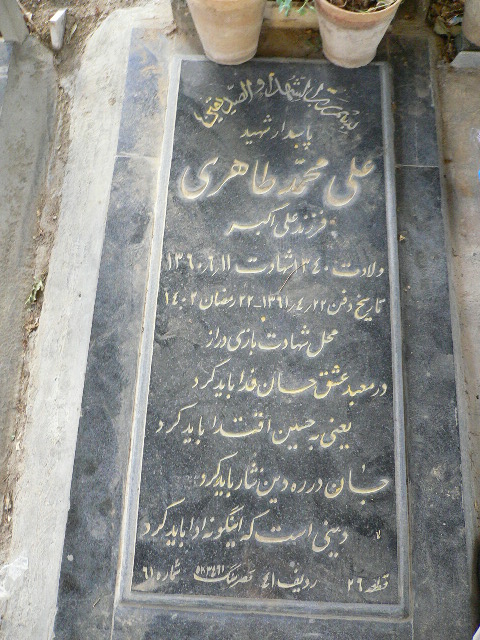 بسم رب الشهداء و الصدیقین
پاسدار شهید
علی محمد طاهری
فرزند علی اکبر
ولادت ۱۳۴۰ شهادت ۱۳۶۰/۶/۱۱
تاریخ دفن ۱۳۶۱/۴/۲۲ - ۲۲ رمضان ۱۴۰۲
محل شهادت بازی دراز
در معبد عشق جان فدا باید کرد
یعنی به حسین اقتدا باید کرد
جان در ره دین نثار باید کرد
دینی است که اینگونه ادا باید کرد
قطعه ۲۶ ردیف ۴۱ شماره ۶۱